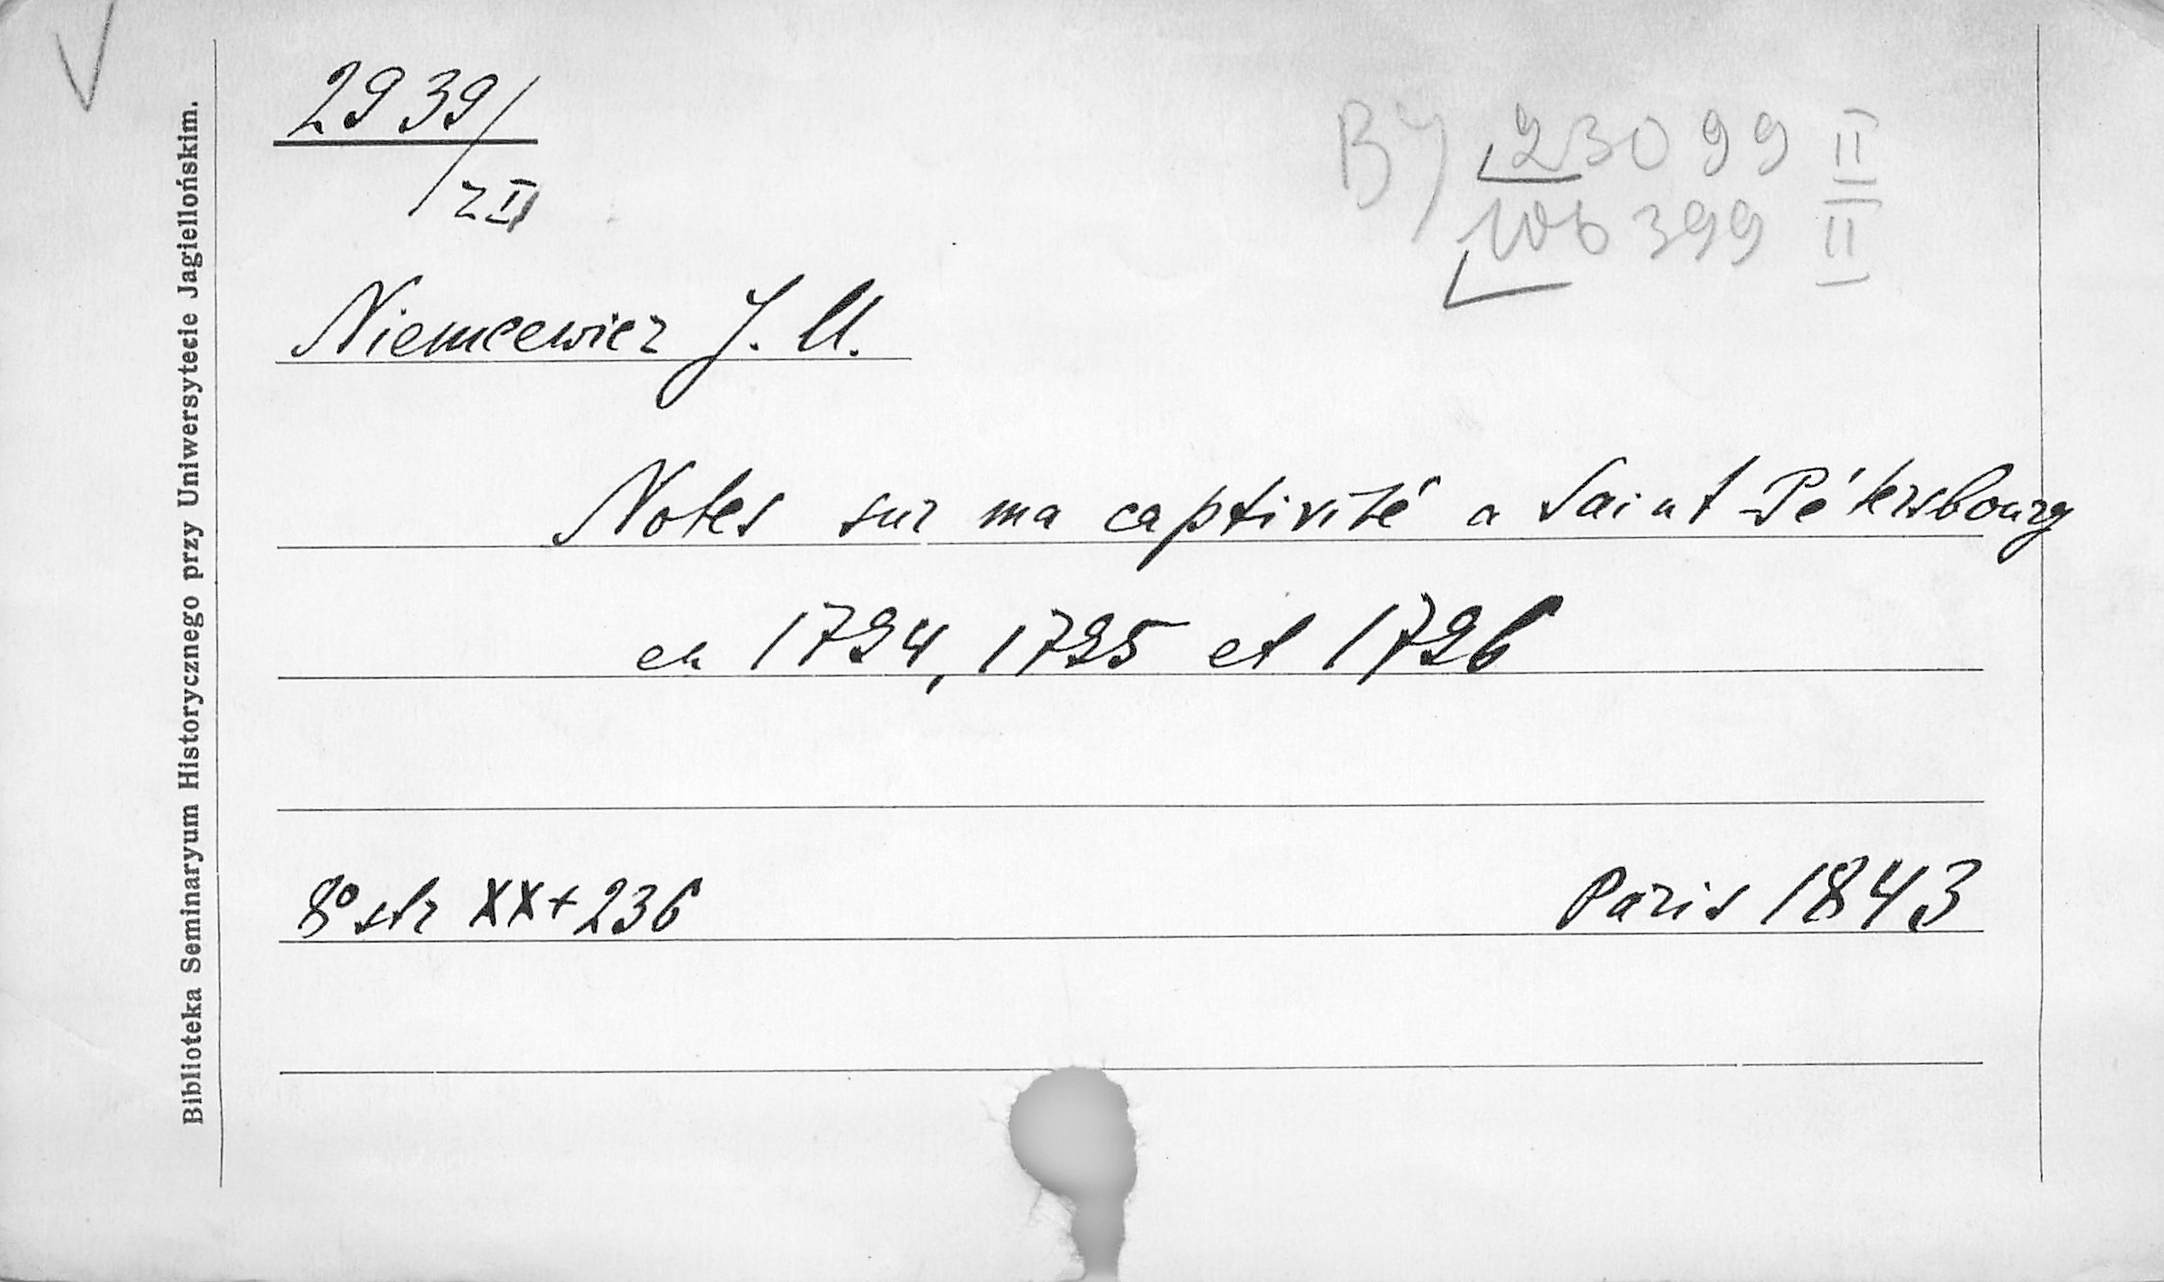 2939/
z II
BJ 23099 II
106399 II
Niemcewicz J. U.
Notes sur ma captivité a Saint Pétersbourg
en 1794, 1795 et 1796
8° str XX+236
Paris 1843
Biblioteka Seminaryum Historycznego przy Uniwersytecie Jagiellońskim.